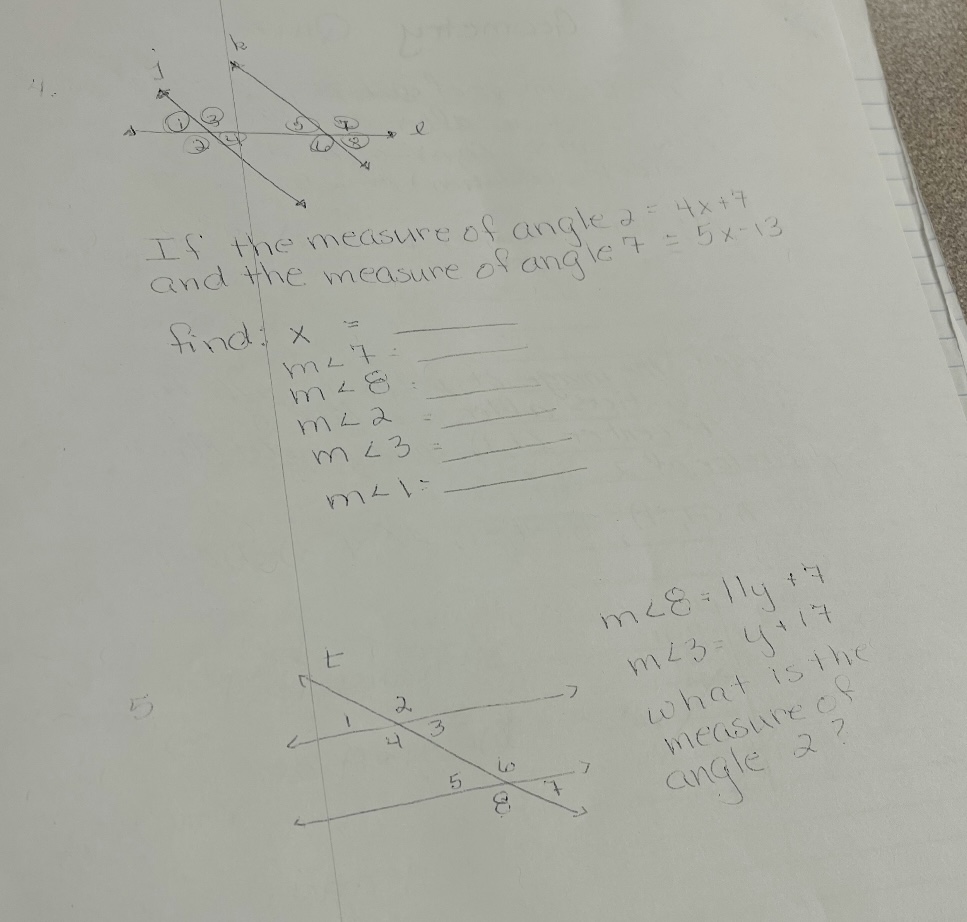 4.
j
k
1 3
2 4
5 7
6 8
l
If the measure of angle 2 = 4x+7
and the measure of angle 7 = 5x-13
find: x = ____
m∠7 = ____
m∠8 = ____
m∠2 = ____
m∠3 = ____
m∠1 = ____
5
t
1 2
4 3
5 6
8 7
m∠8 = 11y +7
m∠3 = y+17
what is the
measure of
angle 2?